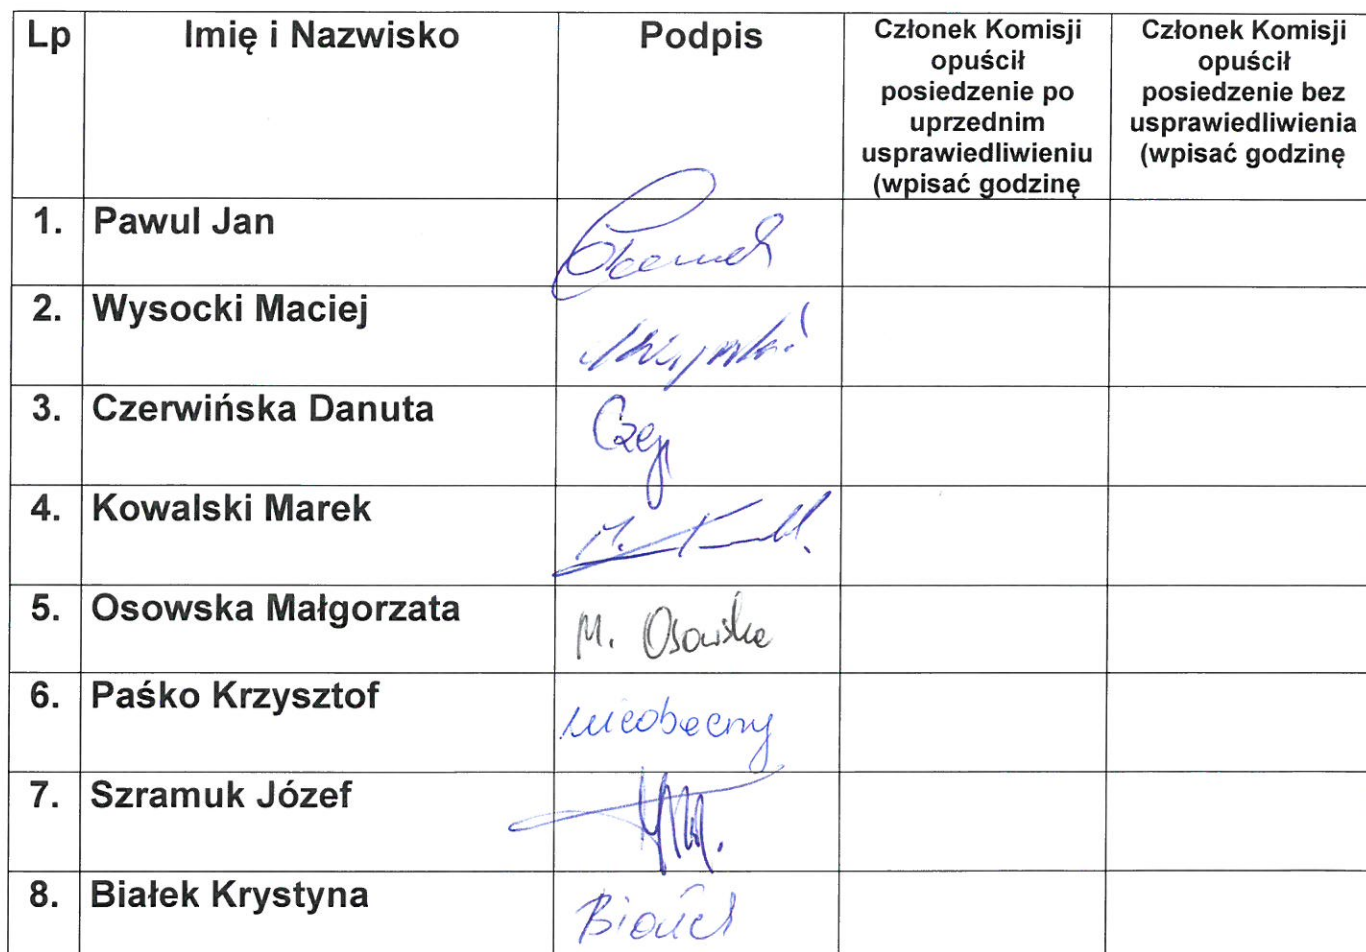 Lp Imię i Nazwisko Podpis
Członek Komisji
opuścił
posiedzenie po
uprzednim
usprawiedliwieniu
(wpisać godzinę
Członek Komisji
opuścił
posiedzenie bez
usprawiedliwienia
(wpisać godzinę
1. Pawul Jan
2. Wysocki Maciej
3. Czerwińska Danuta
4. Kowalski Marek
5. Osowska Małgorzata M. Osowska
6. Paśko Krzysztof nieobecny
7. Szramuk Józef
8. Białek Krystyna